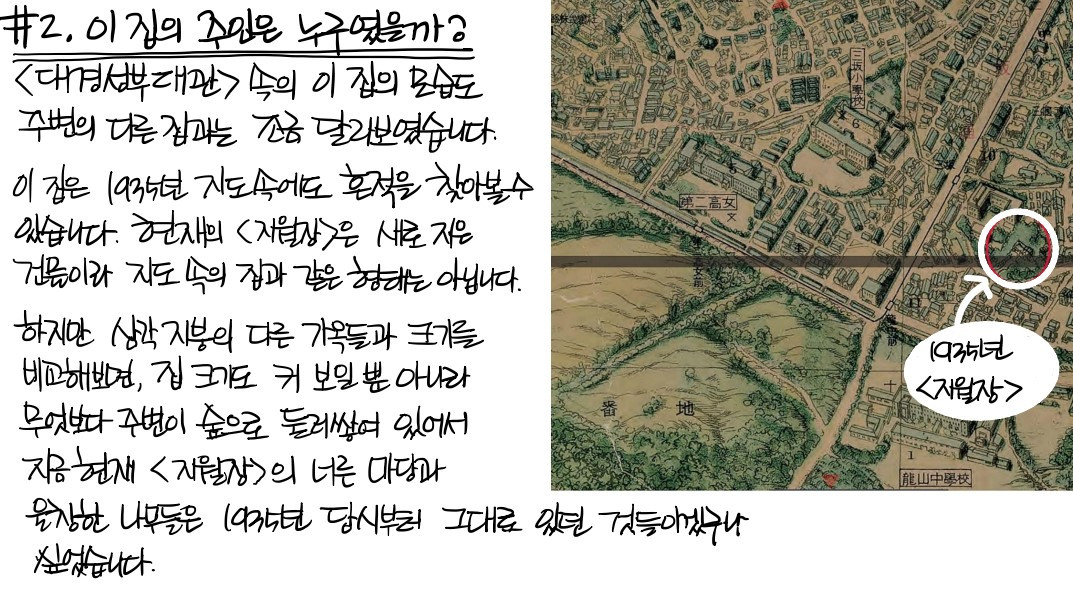 #2. 이 집의 주인은 누구였을까?
<대경성부대관> 속의 이 집의 모습도
주변의 다른 집과는 조금 달라보였습니다.
이 집은 1935년 지도속에도 흔적을 찾아볼 수
있습니다. 현재의 <지월장>은 새로 지은
건물이라 지도 속의 집과 같은 형태는 아닙니다.
하지만 삼각지붕의 다른 가옥들과 크기를
비교해보면, 집 크기도 커 보일 뿐 아니라
무엇보다 주변이 숲으로 둘러쌓여 있어서
지금 현재 <지월장>의 너른 마당과
울창한 나무들은 1935년 당시부터 그대로 있던 것들이겠구나
싶었습니다.
三坂小學校
6
5
第二高女
文
10
11
1935년
<지월장>
番地
十
1
龍山中學校